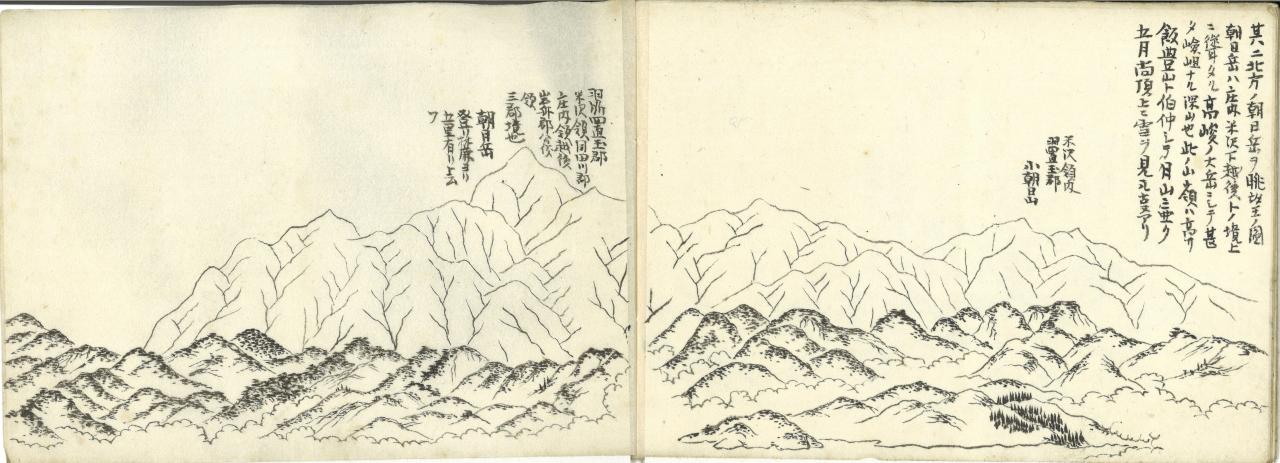 其八ニ北方ノ朝日岳ヲ眺望ノ圖
朝日岳ハ庄内米沢ト越後トノ境上
ニ聳タル高峻ノ大岳ニシテ甚
タ嶮岨ナル深山也此ノ山嶺ハ高サ
飯豊山ト伯仲シテ月山ニ亜ク
五月尚頂上ニ雪ヲ見ル アリ
米沢領内
置玉郡
小朝日山
羽州置玉郡
米沢領田川郡
庄内領越後
岩舟郡
領
三郡境也
朝日岳
登リ 麓ヨリ
五里有リト云
フ